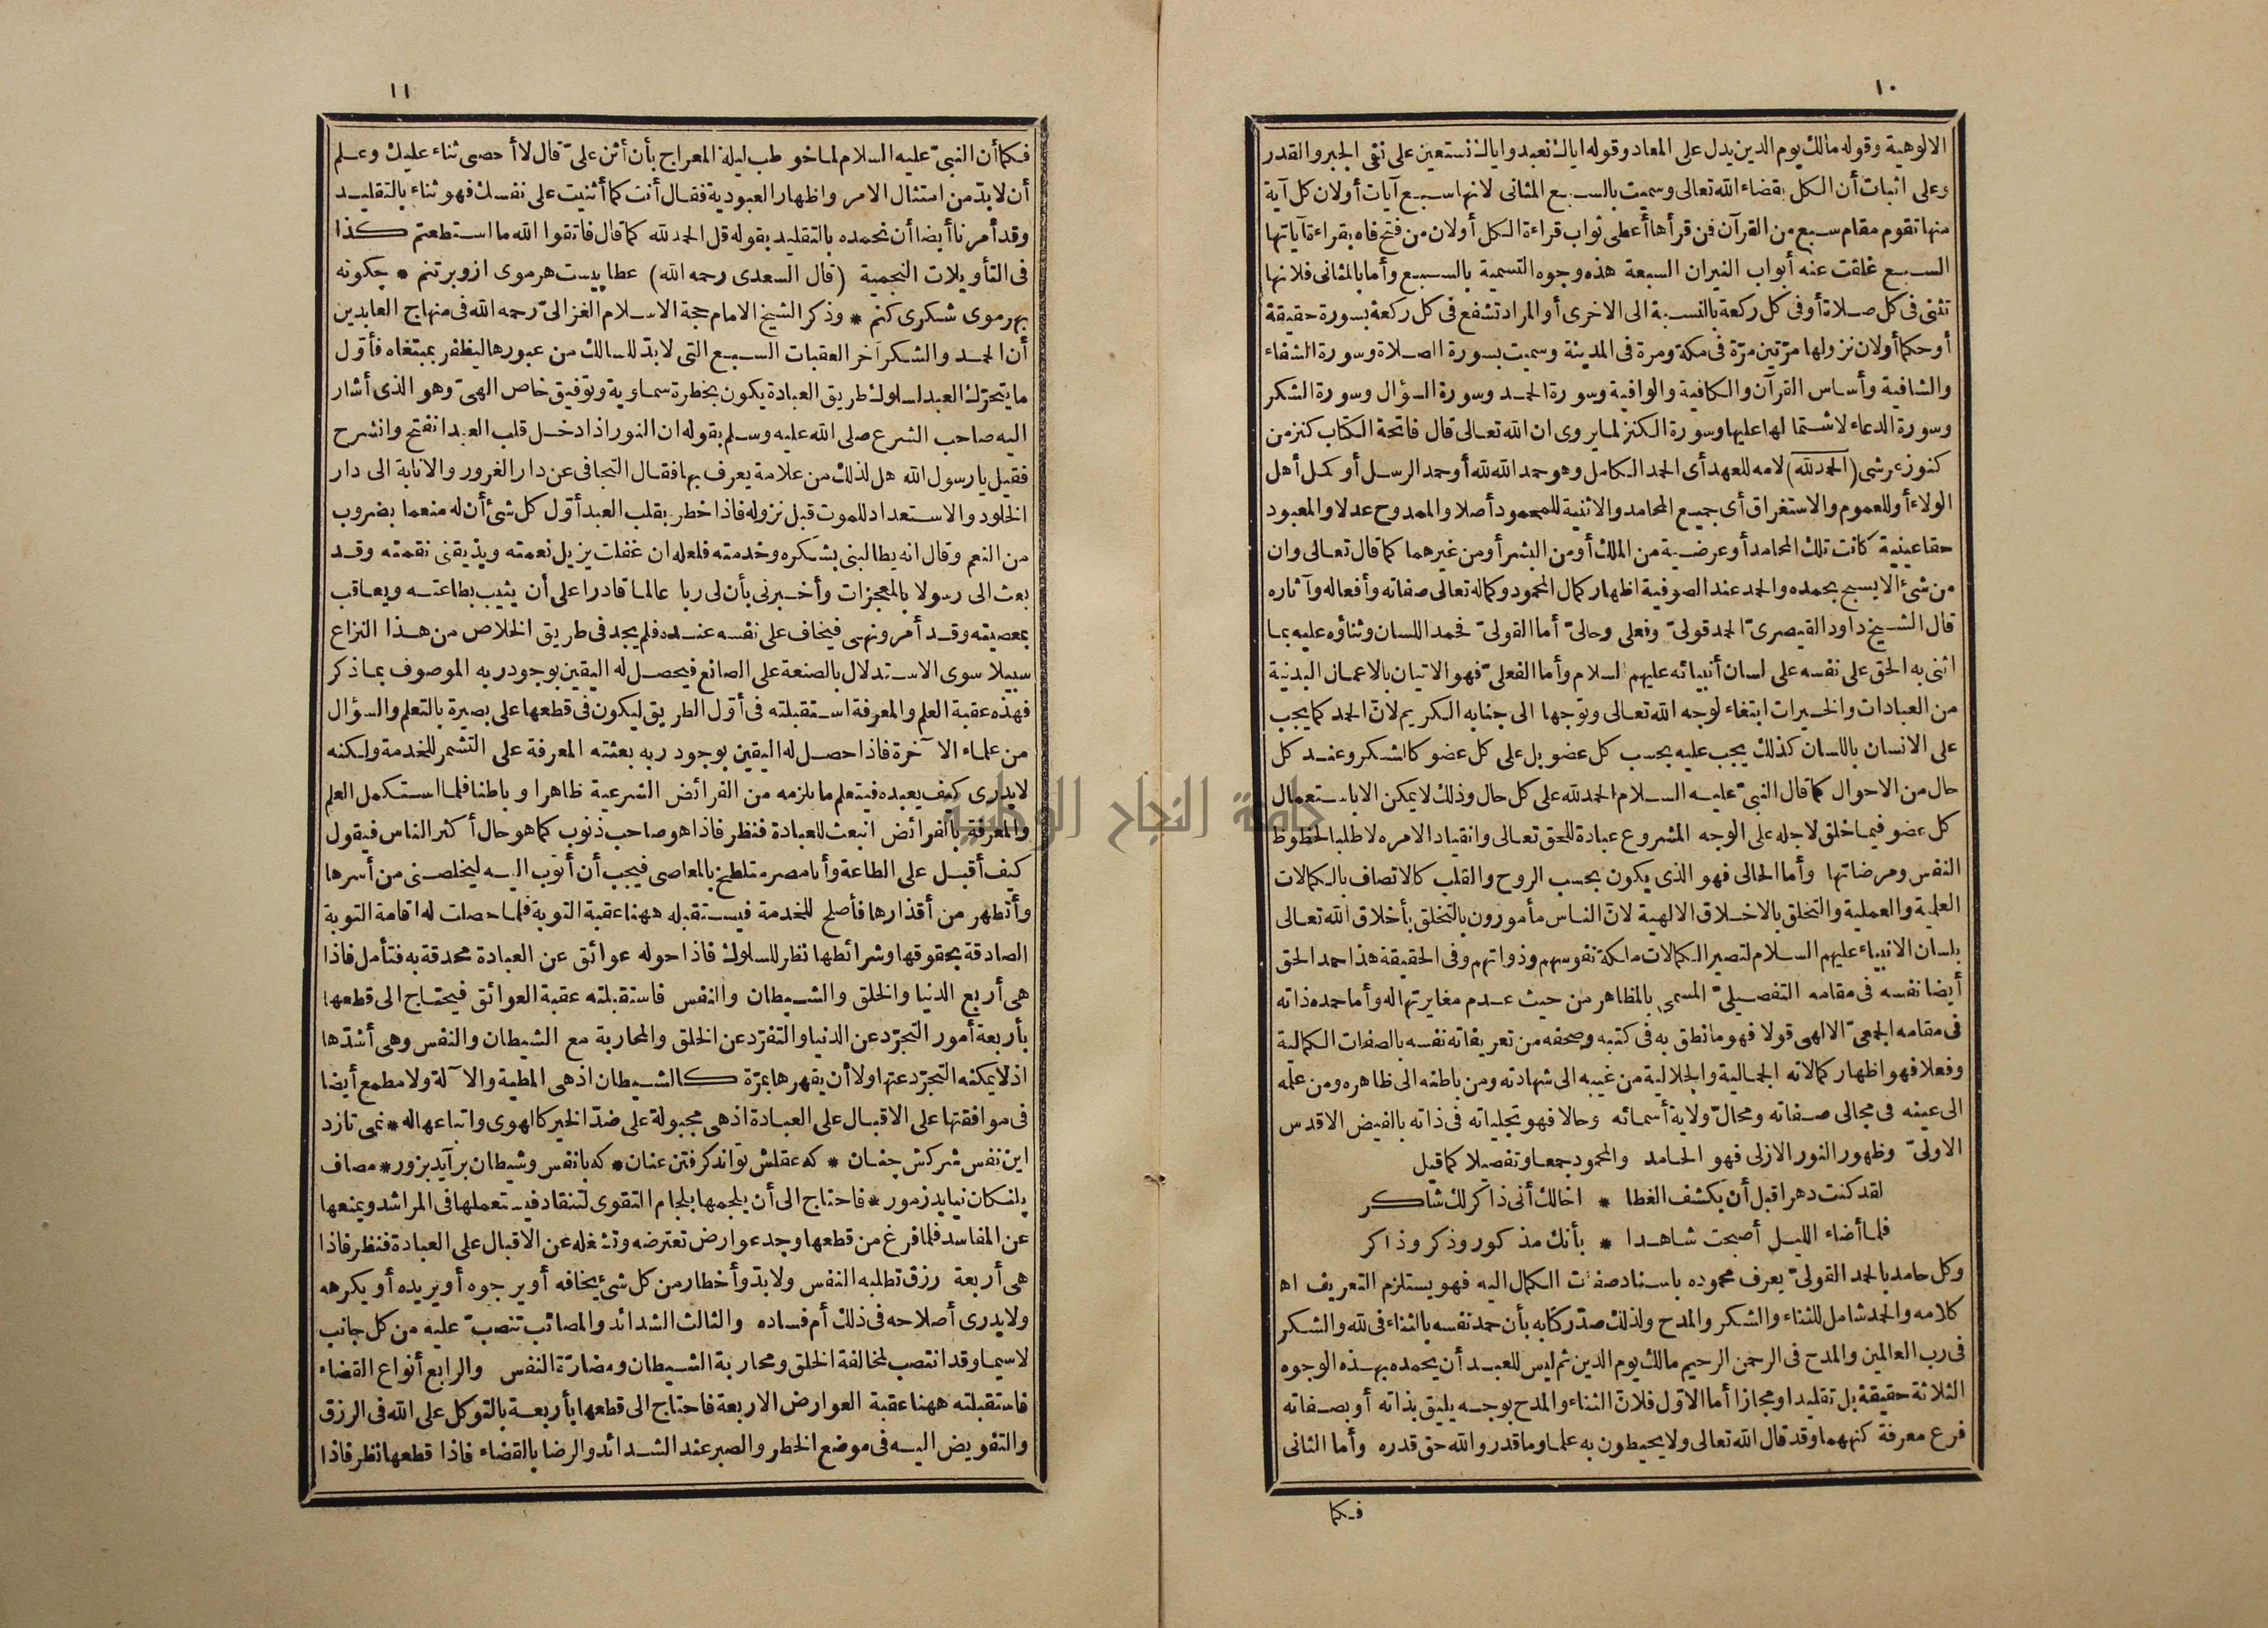 ١٠
الالوهية وقوله مالك يوم الدين يدل على المعاد وقوله اياك نعبد واياك نستعين على نفى الجبر والقدر
وعلى اثبات أن الكل بقضاء الله تعالى وسميت بالسبع المثانى لانها سبع آيات أولان كل آية
منها تقوم مقام سبع من القرآن فمن قرأها أعطى ثواب قراءة الكل أولان من فتح فاه بقراءة آياتها
السبع غلقت عنه أبواب النيران السبعة هذه وجوه التسمية بالسبع وأما بالمثانى فلانها
تثنى فى كل صلاة أو فى كل ركعة بالنسبة الى الاخرى أو المراد تشفع فى كل ركعة بسورة حقيقة
أو حكما أولان نزولها مرّتين مرّة فى مكة ومرة فى المدينة وسميت بسورة الصلاة وسورة الشفاء
والشافية وأساس القرآن والكافية والوافية وسورة الحمد وسورة السؤال وسورة الشكر
وسورة الدعاء لاشتمالها عليها وسورة الكنز لما يروى ان الله تعالى قال فاتحة الكتاب كنز من
كنوز عرشى (الحمد لله) لامه للعهد أى الحمد الكامل وهو حمد الله لله أو حمد الرسل أو كمل أهل
الولاء أو للعموم والاستغراق أى جميع المحامد والاثنية للمحمود أصلا والممدوح عدلا والمعبود
حقا عينية كانت تلك المحامد أو عرضية من الملك أو من البشر أو من غيرهما كما قال تعالى وان
من شئ الا يسبح بحمده والحمد عند الصوفية اظهار كمال المحمود وكماله تعالى صفاته وأفعاله وآثاره
قال الشيخ داود القيصرىّ الحمد قولىّ وفعلى وحالىّ أما القولىّ فحمد اللسان وثناؤه عليه بما
اثنى به الحق على نفسه على لسان أنبيائه عليهم السلام وأما الفعلىّ فهو الاتيان بالاعمال البدنية
من العبادات والخيرات ابتغاء لوجه الله تعالى وتوجها الى جنابه الكريم لانّ الحمد كما يجب
على الانسان باللسان كذلك يجب عليه بحسب كل عضو بل على كل عضو كالشكر وعند كل
حال من الاحوال كما قال النبىّ عليه السلام الحمد لله على كل حال وذلك لا يمكن الا باستعمال
كل عضو فيما خلق لاجله على الوجه المشروع عبادة للحق تعالى وانقيادا لامره لا طلبا لحظوظ
النفس ومرضاتها وأما الحالى فهو الذى يكون بحسب الروح والقلب كالاتصاف بالكمالات
العلمية والعملية والتخلق بالاخلاق الالهية لانّ الناس مأمورون بالتخلق بأخلاق الله تعالى
بلسان الانبياء عليهم السلام لتصير الكمالات ملكة نفوسهم وذواتهم وفى الحقيقة هذا حمد الحق
أيضا نفسه فى مقامه التفصيلىّ المسمى بالمظاهر من حيث عدم مغايرتها له وأما حمده ذاته
فى مقامه الجمعىّ الالهى قولا فهو ما نطق به فى كتبه وصحفه من تعريفاته نفسه بالصفات الكمالية
وفعلا فهو اظهار كمالاته الجمالية والجلالية من غيبه الى شهادته ومن باطنه الى ظاهره ومن علمه
الى عينه فى مجالى صفاته ومحالّ ولاية أسمائه وحالا فهو تجلياته فى ذاته بالفيض الاقدس
الاولىّ وظهور النور الازلى فهو الحامد والمحمود جمعا وتفصيلا كما قيل
لقد كنت دهرا قبل أن يكشف الغطا * اخالك أنى ذاكر لك شاكر
فلما أضاء الليل أصبحت شاهدا * بأنك مذكور وذكر وذاكر
وكل حامد بالحمد القولىّ يعرف محموده باسناد صفات الكمال اليه فهو يستلزم التعريف اه
كلامه والحمد شامل للثناء والشكر والمدح ولذلك صدّر كتابه بأن حمد نفسه بالثناء فى لله والشكر
فى رب العالمين والمدح فى الرحمن الرحيم مالك يوم الدين ثم ليس للعبد أن يحمده بهذه الوجوه
الثلاثة حقيقة بل تقليدا ومجازا أما الاوّل فلانّ الثناء والمدح بوجه يليق بذاته أو بصفاته
فرع معرفة كنههما وقد قال الله تعالى ولا يحيطون به علما وما قدروا الله حق قدره وأما الثانى
فكما
١١
فكما أن النبىّ عليه السلام لما خوطب ليلة المعراج بأن أثن علىّ قال لا أحصى ثناء عليك وعلم
أن لا بدّ من امتثال الامر واظهار العبودية فقال أنت كما أثنيت على نفسك فهو ثناء بالتقليد
وقد أمرنا أيضا أن نحمده بالتقليد بقوله قل الحمد لله كما قال فاتقوا الله ما استطعتم كذا
فى التأويلات النجمية (قال السعدى رحمه الله) عطاييست هر موى ازو برتنم * چكونه
بهر موى شكرى كنم * وذكر الشيخ الامام حجة الاسلام الغزالىّ رحمه الله فى منهاج العابدين
أن الحمد والشكر آخر العقبات السبع التى لا بدّ للسالك من عبورها ليظفر بمبتغاه فأوّل
ما يتحرّك العبد لسلوك طريق العبادة يكون بخطرة سماوية وتوفيق خاص الهىّ وهو الذى أشار
اليه صاحب الشرع صلى الله عليه وسلم بقوله ان النور اذا دخل قلب العبد انفتح وانشرح
فقيل يا رسول الله هل لذلك من علامة يعرف بها فقال التجافى عن دار الغرور والانابة الى دار
الخلود والاستعداد للموت قبل نزوله فاذا خطر بقلب العبد أوّل كل شئ أن له منعما بضروب
من النعم وقال انه يطالبنى بشكره وخدمته فلعله ان غفلت يزيل نعمته ويذيقنى نقمته وقد
بعث الى رسولا بالمعجزات وأخبرنى بأن لى ربا عالما قادرا على أن يثيب بطاعته ويعاقب
بمعصيته وقد أمر ونهى فيخاف على نفسه عنده فلم يجد فى طريق الخلاص من هذا النزاع
سبيلا سوى الاستدلال بالصنعة على الصانع فيحصل له اليقين بوجود ربه الموصوف بما ذكر
فهذه عقبة العلم والمعرفة استقبلته فى أوّل الطريق ليكون فى قطعها على بصيرة بالتعلم والسؤال
من علماء الآخرة فاذا حصل له اليقين بوجود ربه بعثته المعرفة على التشمر للخدمة ولكنه
لا يدرى كيف يعبده فيتعلم ما يلزمه من الفرائض الشرعية ظاهرا وباطنا فلما استكمل العلم
والمعرفة بالفرائض انبعث للعبادة فنظر فاذا هو صاحب ذنوب كما هو حال أكثر الناس فيقول
كيف أقبل على الطاعة وأنا مصر متلطخ بالمعاصى فيجب أن أتوب اليه ليخلصنى من أسرها
وأتطهر من أقذارها فأصلح للخدمة فيستقبله ههنا عقبة التوبة فلما حصلت له اقامة التوبة
الصادقة بحقوقها وشرائطها نظر للسلوك فاذا حوله عوائق عن العبادة محدقة به فتأمل فاذا
هى أربع الدنيا والخلق والشيطان والنفس فاستقبلته عقبة العوائق فيحتاج الى قطعها
بأربعة أمور التجرّد عن الدنيا والتفرّد عن الخلق والمحاربة مع الشيطان والنفس وهى أشدّها
اذ لا يمكنه التجرّد عنها ولا أن يقهرها بمرّة كالشيطان اذ هى المطية والآلة ولا مطمع أيضا
فى موافقتها على الاقبال على العبادة اذ هى مجبولة على ضدّ الخير كالهوى واتباعها له * نمى تازد
اين نفس سركش چنان * كه عقلش تواند كرفتن عنان * كه بانفس وشيطان برآيد بزور * مصاف
پلنكان نيايد زمور * فاحتاج الى أن يلجمها بلجام التقوى لتنقاد فيستعملها فى المراشد ويمنعها
عن المفاسد فلما فرغ من قطعها وجد عوارض تعترضه وتشغله عن الاقبال على العبادة فنظر فاذا
هى أربعة رزق تطلبه النفس ولا بدّ وأخطار من كل شئ يخافه أو يرجوه أو يريده أو يكرهه
ولا يدرى أصلاحه فى ذلك أم فساده والثالث الشدائد والمصائب تنصبّ عليه من كل جانب
لاسيما وقد انتصب لمخالفة الخلق ومحاربة الشيطان ومضارّة النفس والرابع أنواع القضاء
فاستقبلته ههنا عقبة العوارض الاربعة فاحتاج الى قطعها بأربعة بالتوكل على الله فى الرزق
والتفويض اليه فى موضع الخطر والصبر عند الشدائد والرضا بالقضاء فاذا قطعها نظر فاذا
جامعة النجاح الوطنية